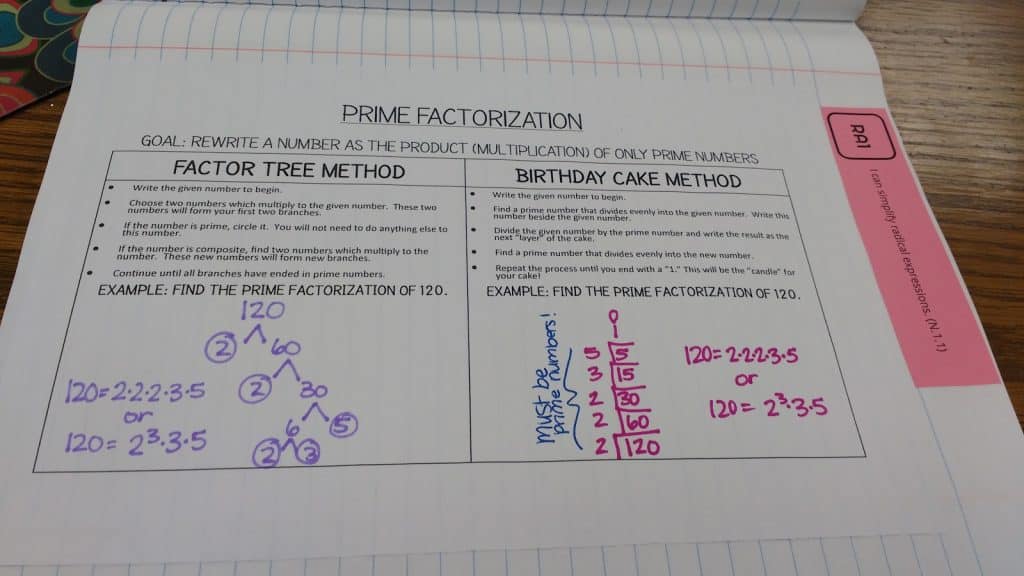 PRIME FACTORIZATION
GOAL: REWRITE A NUMBER AS THE PRODUCT (MULTIPLICATION) OF ONLY PRIME NUMBERS
FACTOR TREE METHOD
• Write the given number to begin.
• Choose two numbers which multiply to the given number. These two
numbers will form your first two branches.
• If the number is prime, circle it. You will not need to do anything else to
this number.
• If the number is composite, find two numbers which multiply to the
number. These new numbers will form new branches.
• Continue until all branches have ended in prime numbers.
EXAMPLE: FIND THE PRIME FACTORIZATION OF 120.
120
2 60
2 30
6 5
2 3
120=2·2·2·3·5
or
120= 2³·3·5
BIRTHDAY CAKE METHOD
• Write the given number to begin.
• Find a prime number that divides evenly into the given number. Write this
number beside the given number.
• Divide the given number by the prime number and write the result as the
next "layer" of the cake.
• Find a prime number that divides evenly into the new number.
• Repeat the process until you end with a "1." This will be the "candle" for
your cake!
EXAMPLE: FIND THE PRIME FACTORIZATION OF 120.
must be
prime numbers!
1
5 5
3 15
2 30
2 60
2 120
120=2·2·2·3·5
or
120= 2³·3·5
RA1
I can simplify radical expressions. (N.1.1)